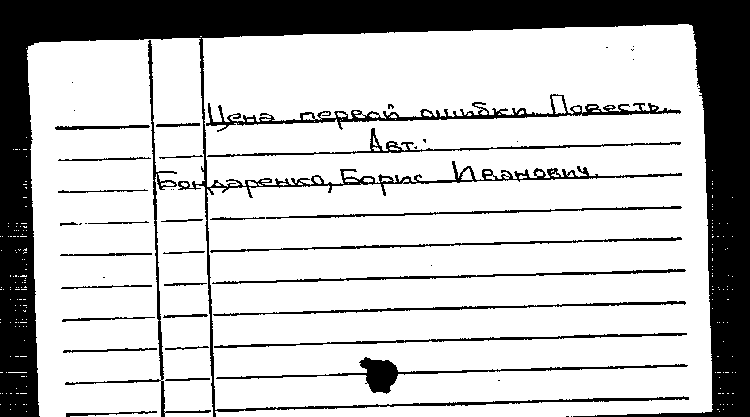 Цена первой ошибки. Повесть.
Авт.:
Бондаренко, Борис Иванович.